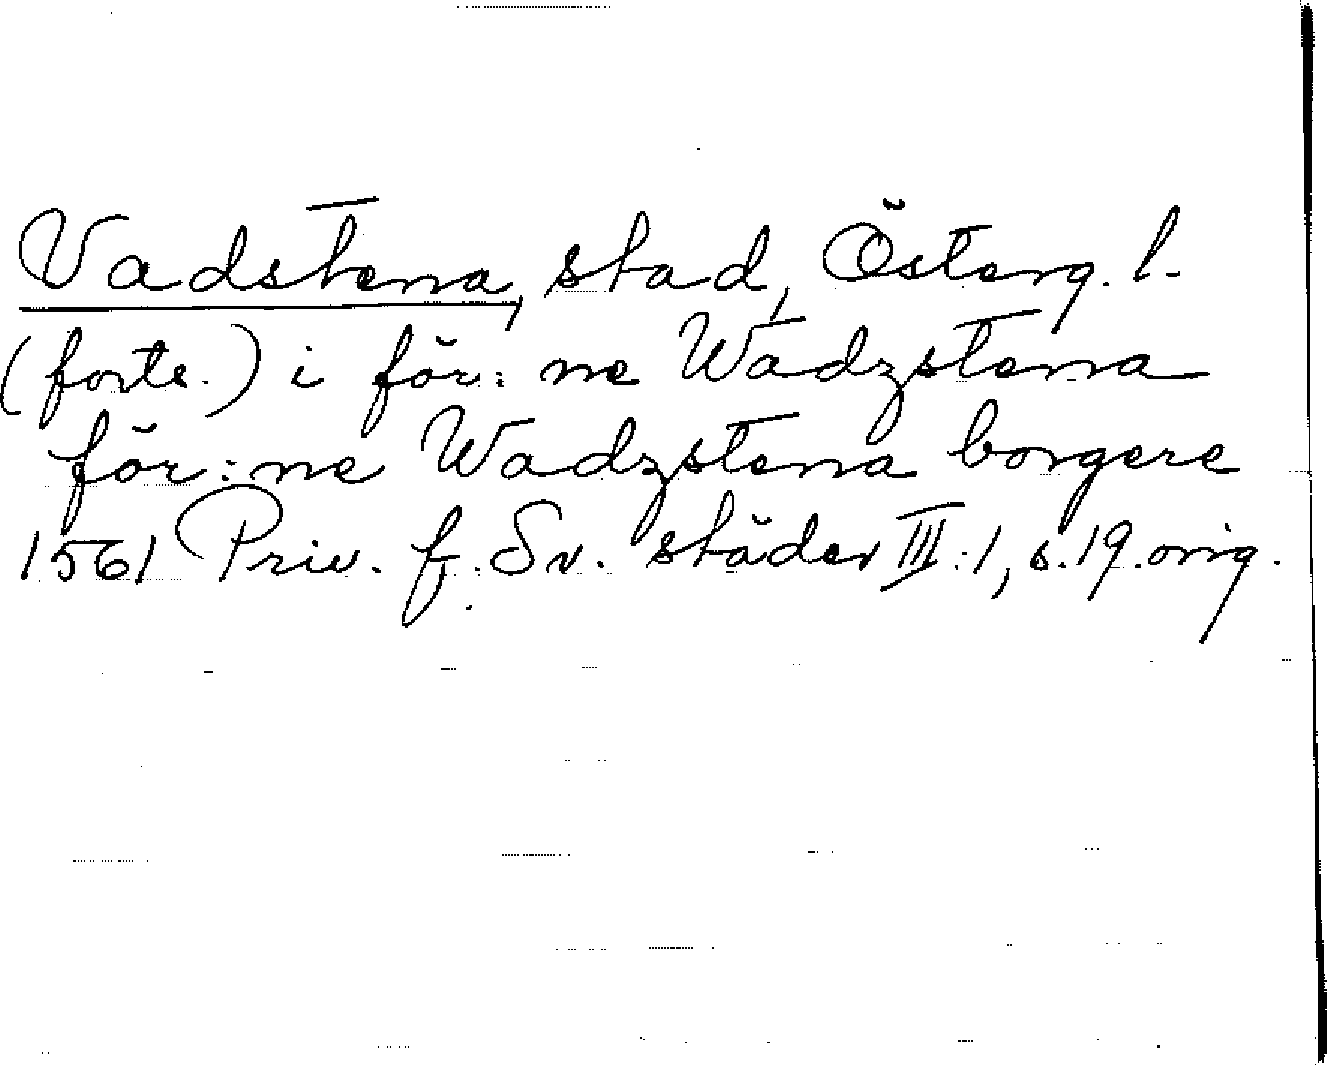 Vadstena, stad, Österg. l.
(forts.) i för: ne Wadzstena
för: ne Wadzstena borgere
1561 Priv. f. Sv. städer III:1, s. 19. orig.